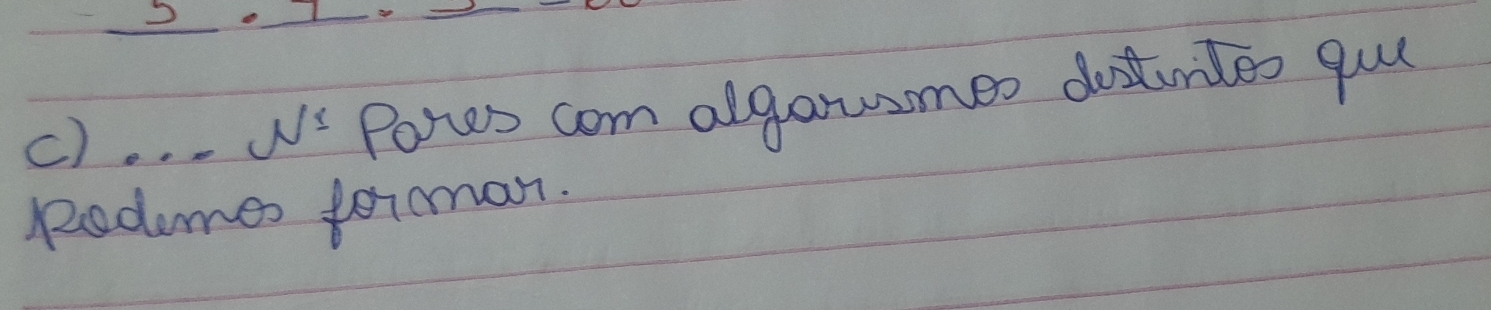 c) ... Nº Pares com algarismos distintos que
Podemos formar.